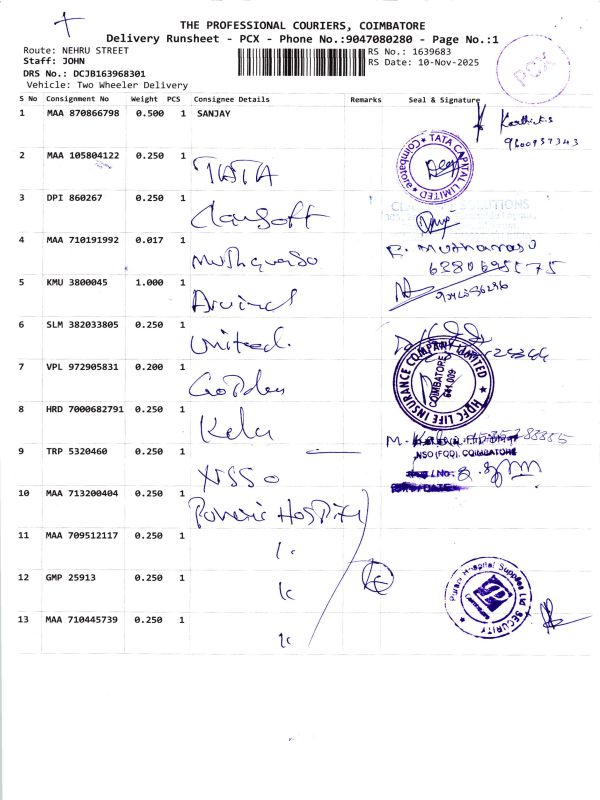 THE PROFESSIONAL COURIERS, COIMBATORE
Delivery Runsheet - PCX - Phone No.:9047080280 - Page No.:1
Route: NEHRU STREET
RS No.: 1639683
Staff: JOHN
RS Date: 10-Nov-2025
DRS No.: DCJB163968301
Vehicle: Two Wheeler Delivery
PCX
S No Consignment No Weight PCS Consignee Details Remarks Seal & Signature
1 MAA 870866798 0.500 1 SANJAY
Karthick.s
9600957343
2 MAA 105804122 0.250 1 TATA
TATA CAPITAL LIMITED Coimbatore
3 DPI 860267 0.250 1 Clausoft
SOLUTIONS
4 MAA 710191992 0.017 1
5 KMU 3800045 1.000 1 Arvind
6 SLM 382033805 0.250 1 United.
HDFC LIFE INSURANCE COMPANY LIMITED
COIMBATORE
641 009
7 VPL 972905831 0.200 1 Golden
8 HRD 7000682791 0.250 1 Kala
M. Kala
NSO (FOD), COIMBATORE
9 TRP 5320460 0.250 1 NSSO
DATE
10 MAA 713200404 0.250 1 Hospital
11 MAA 709512117 0.250 1
12 GMP 25913 0.250 1
13 MAA 710445739 0.250 1
Hospital Supplies
SECURITY